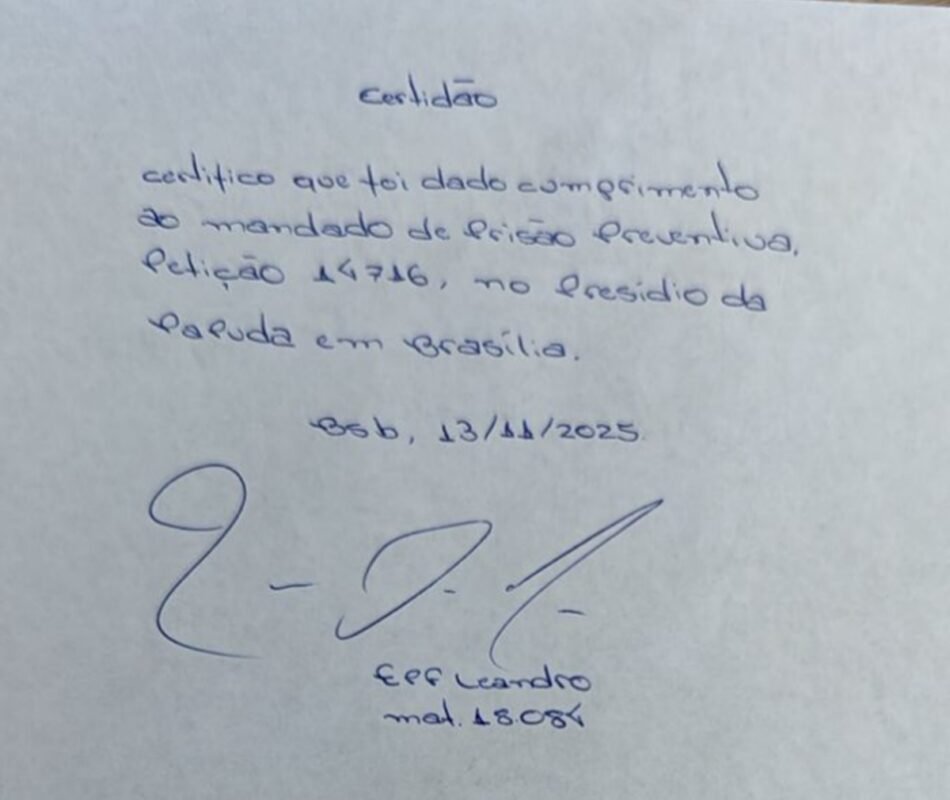 Certidão
certifico que foi dado cumprimento
ao mandado de Prisão Preventiva,
Petição 14716, no Presídio da
Papuda em Brasília.
Bsb, 13/11/2025.
EPF Leandro
mat. 18.084